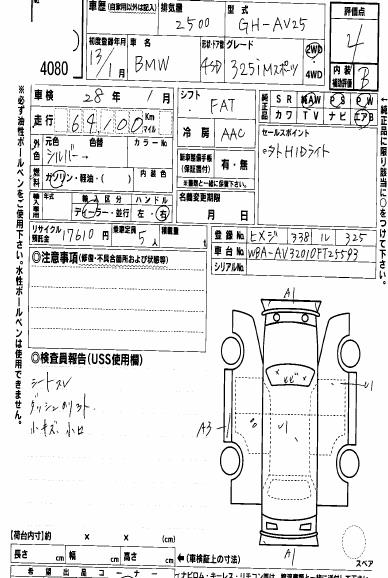 車歴(自家用以外は記入)
排気量
2500
型式
GH-AV25
評価点
4
4080
初度登録年月
13/1月
車名
BMW
形状・ドア数
4SD
グレード
325iMスポーツ
2WD
4WD
内装
補助評価
B
車検 28年 1月
シフト
FAT
純正品
SR AW PS PW
カワ TV ナビ エアB
走行 64,100 Km
マイル
冷房
AAC
セールスポイント
HIDライト
外色
元色
色替
カラーNo
シルバー →
新車整備手帳
(保証書付)
有・無
※書類と一緒に保管されます。
燃料
ガソリン・軽油・( )
内装色
名義変更期限
月 日
輸入車用
年式
輸入区分
ディーラー・並行
ハンドル
左・右
リサイクル預託金
17610円
乗車定員
5人
積載量
t
登録No.
ヒメジ 338 ル 325
車台No.
WBA-AV32010FT25593
シリアルNo.
◎注意事項(修復・不具合箇所および状態等)
◎検査員報告(USS使用欄)
シートスレ
小キズ 小凹
A1
U1
A3
U1
A1
スペア
【荷台内寸】 × × (cm)
長さ cm 幅 cm 高さ cm ←(車検証上の寸法)
希望出品コーナー
※必ず油性ボールペンをご使用下さい。水性ボールペンは使用できません。
←純正品に限り該当に○をつけて下さい。